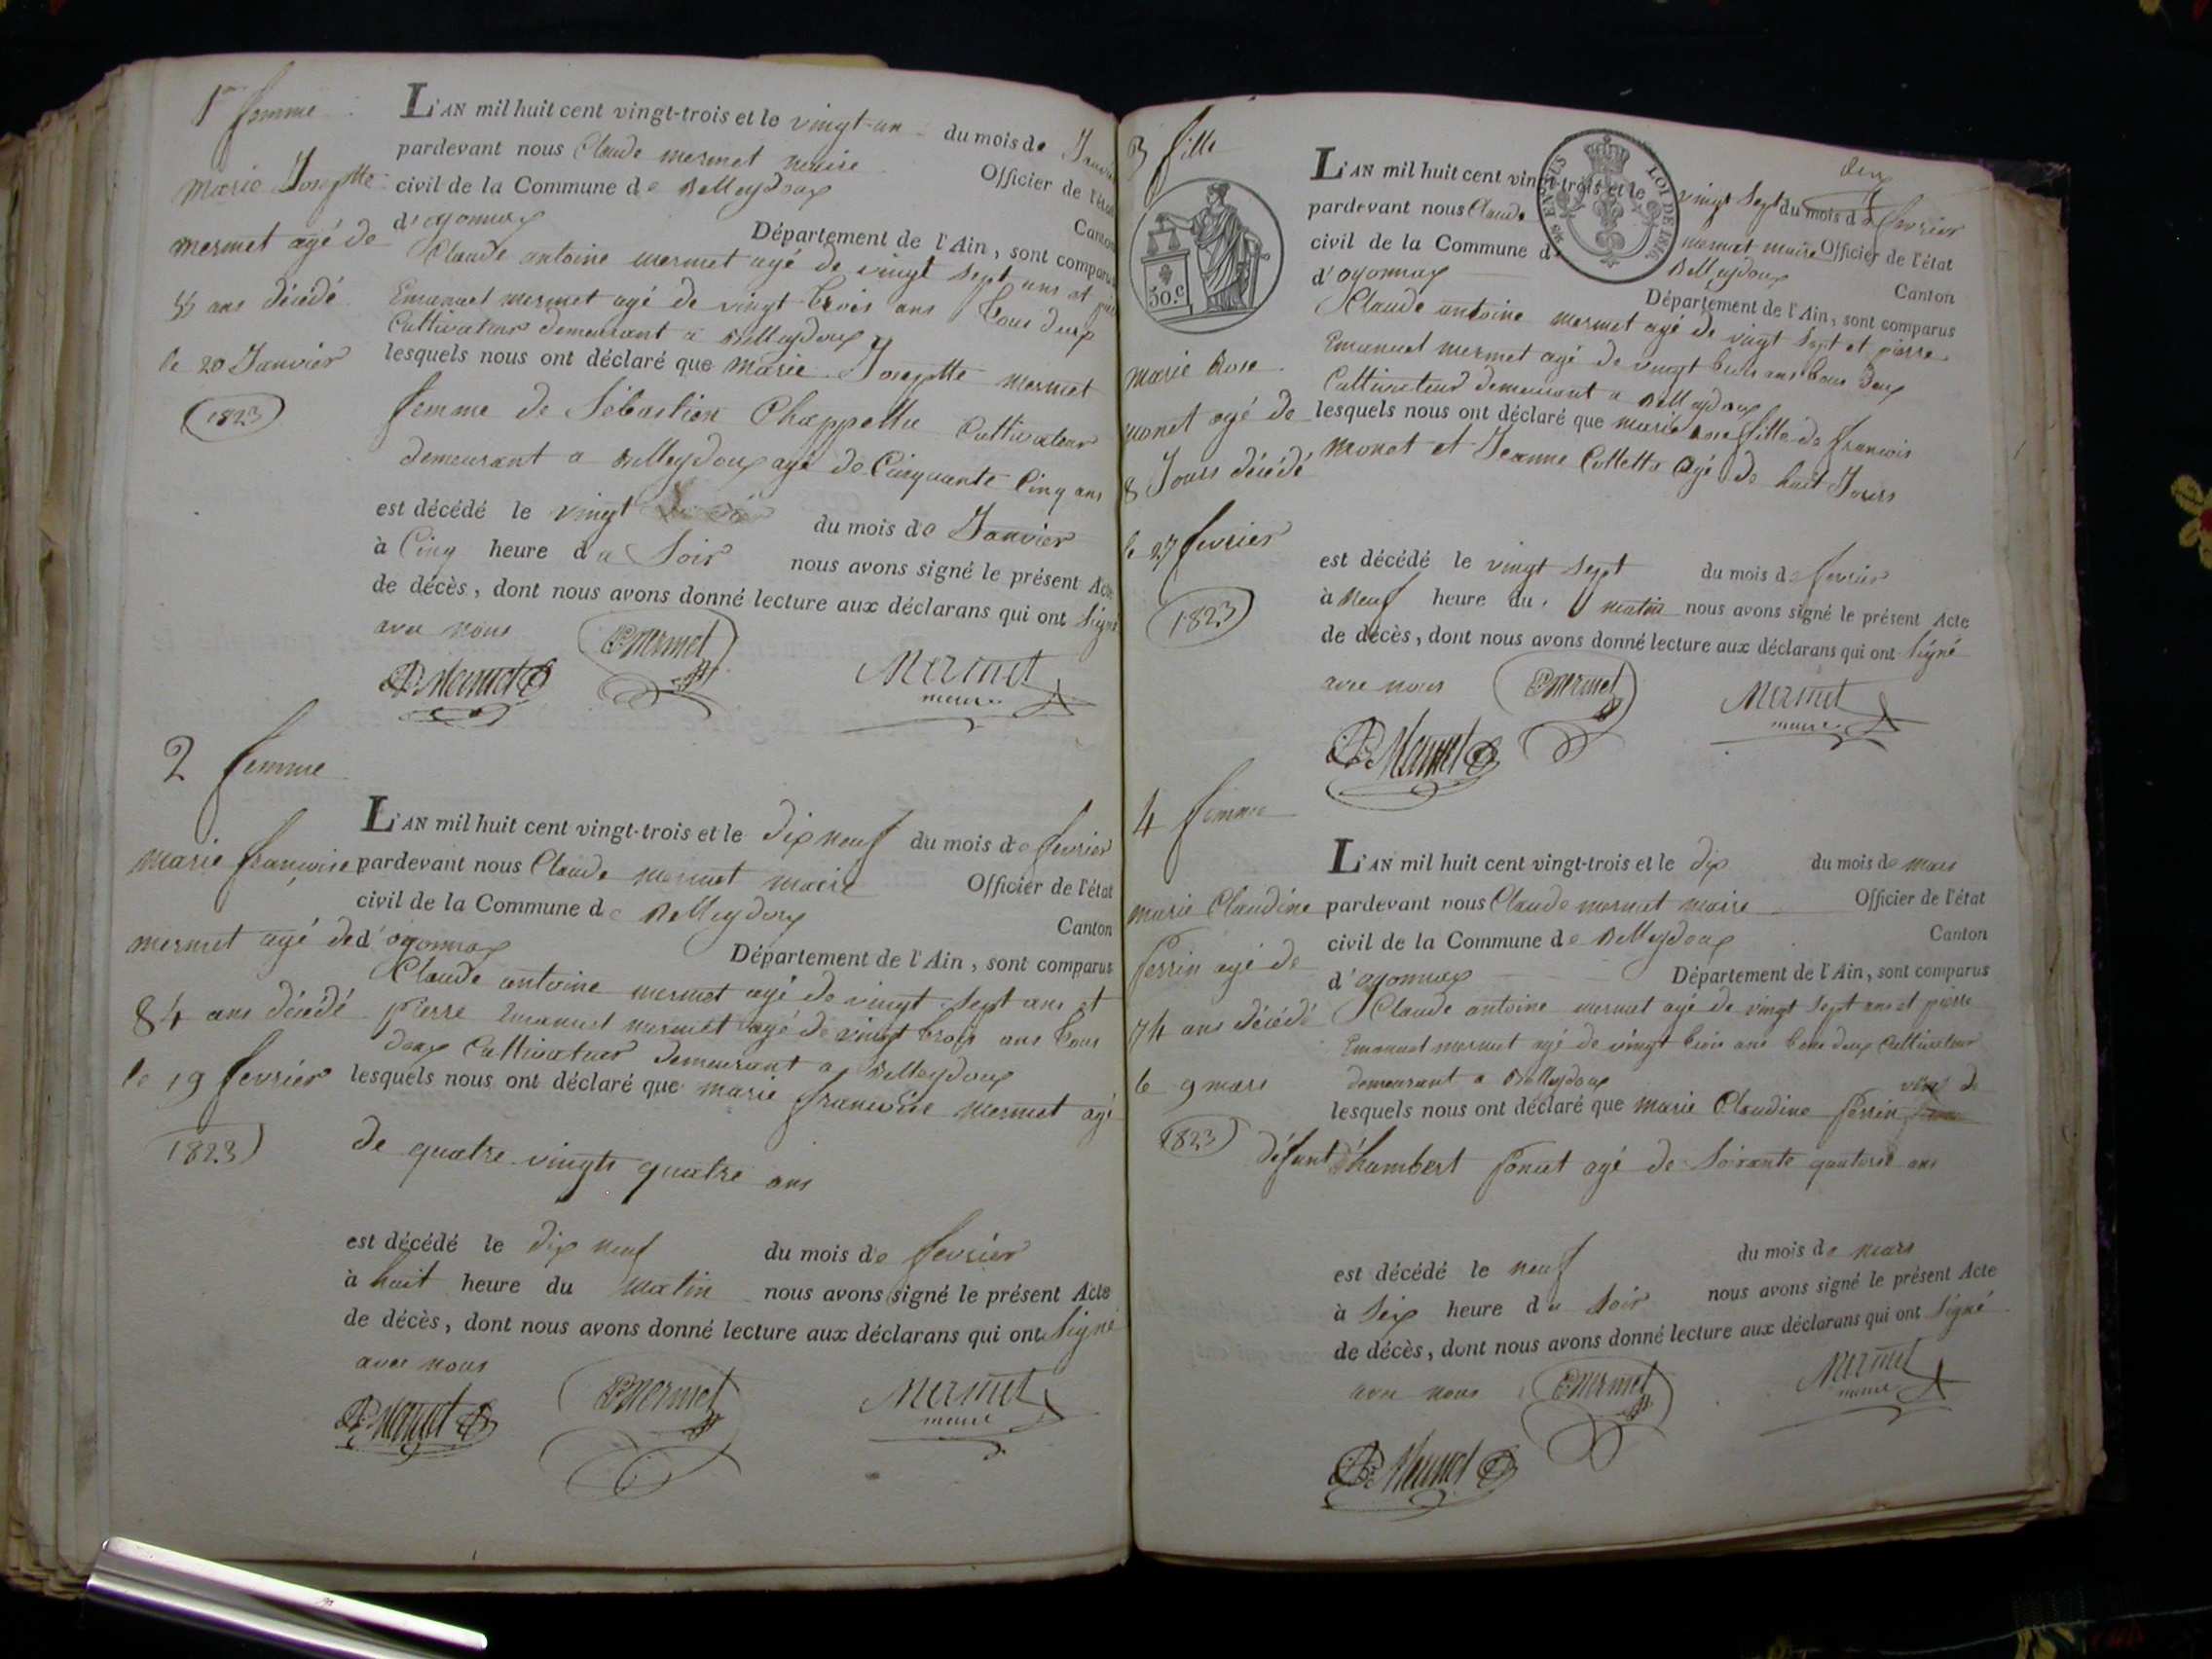 1er femme
Marie Josephte
mermet agé de
55 ans décédé
le 20 Janvier
1823
L'AN mil huit cent vingt-trois et le vingt-un du mois de Janvier
pardevant nous Claude mermet maire Officier de l'état
civil de la Commune de Belleydoux Canton
d'oyonnax Département de l'Ain, sont comparus
Claude antoine mermet agé de vingt sept ans et
Emanuel mermet agé de vingt trois ans tous deux
Cultivateur demeurant a Belleydoux
lesquels nous ont déclaré que Marie Josephte mermet
femme de Sébastien Chappellu Cultivateur
demeurant a Belleydoux agé de Cinquante Cinq ans
est décédé le vingt du mois de Janvier
à Cinq heure du Soir nous avons signé le présent Acte
de décès, dont nous avons donné lecture aux déclarans qui ont signé
avec nous
Mermet
Mermet
Mermet
maire
2 femme
Marie françoise
mermet agé de
84 ans décédé
le 19 fevrier
1823
L'AN mil huit cent vingt-trois et le dix neuf du mois de fevrier
pardevant nous Claude mermet maire Officier de l'état
civil de la Commune de Belleydoux Canton
d'oyonnax Département de l'Ain, sont comparus
Claude antoine mermet agé de vingt sept ans et
pierre Emanuel mermet agé de vingt trois ans tous
deux Cultivateur demeurant a Belleydoux
lesquels nous ont déclaré que marie françoise mermet agé
de quatre vingts quatre ans
est décédé le dix neuf du mois de fevrier
à huit heure du matin nous avons signé le présent Acte
de décès, dont nous avons donné lecture aux déclarans qui ont Signé
avec nous
Mermet
Mermet
Mermet
maire
3 fille
50.c
marie Rose
monet agé de
8 Jours décédé
le 27 fevrier
1823
LOI DE 1816
L'AN mil huit cent vingt-trois et le vingt Sept du mois de fevrier
pardevant nous Claude mermet maire Officier de l'état
civil de la Commune de Belleydoux Canton
d'oyonnax Département de l'Ain, sont comparus
Claude antoine mermet agé de vingt Sept et pierre
Emanuel mermet agé de vingt trois ans tous deux
Cultivateur demeurant a Belleydoux
lesquels nous ont déclaré que marie rose fille de françois
monet et Jeanne Colletta agé de huit Jours
est décédé le vingt Sept du mois de fevrier
à neuf heure du matin nous avons signé le présent Acte
de décès, dont nous avons donné lecture aux déclarans qui ont Signé
avec nous
Mermet
Mermet
maire
Mermet
4 femme
marie Claudine
perrin agé de
74 ans décédé
le 9 mars
1823
L'AN mil huit cent vingt-trois et le dix du mois de mars
pardevant nous Claude mermet maire Officier de l'état
civil de la Commune de Belleydoux Canton
d'oyonnax Département de l'Ain, sont comparus
Claude antoine mermet agé de vingt Sept ans et pierre
Emanuel mermet agé de vingt trois ans tous deux Cultivateur
demeurant a Belleydoux
lesquels nous ont déclaré que marie Claudine perrin
défunt humbert poncet agé de Soixante quatorse ans
est décédé le neuf du mois de mars
à Six heure du Soir nous avons signé le présent Acte
de décès, dont nous avons donné lecture aux déclarans qui ont Signé
avec nous
Mermet
Mermet
maire
Mermet